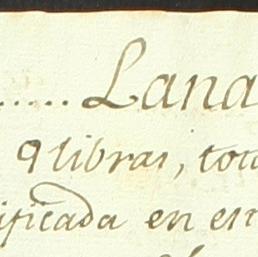 ...... Lana
9 libras, tota
ificada en est